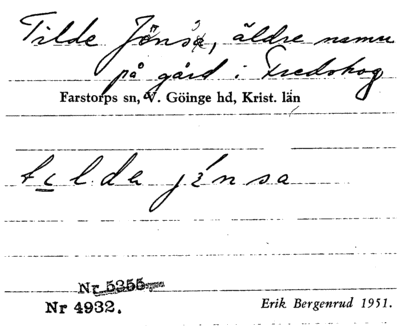 Tilde Jöns, äldre namn
på gård i Fredskog
Farstorps sn, V. Göinge hd, Krist. län
tılda jönsa
Nr 5355
Nr 4932.
Erik Bergenrud 1951.